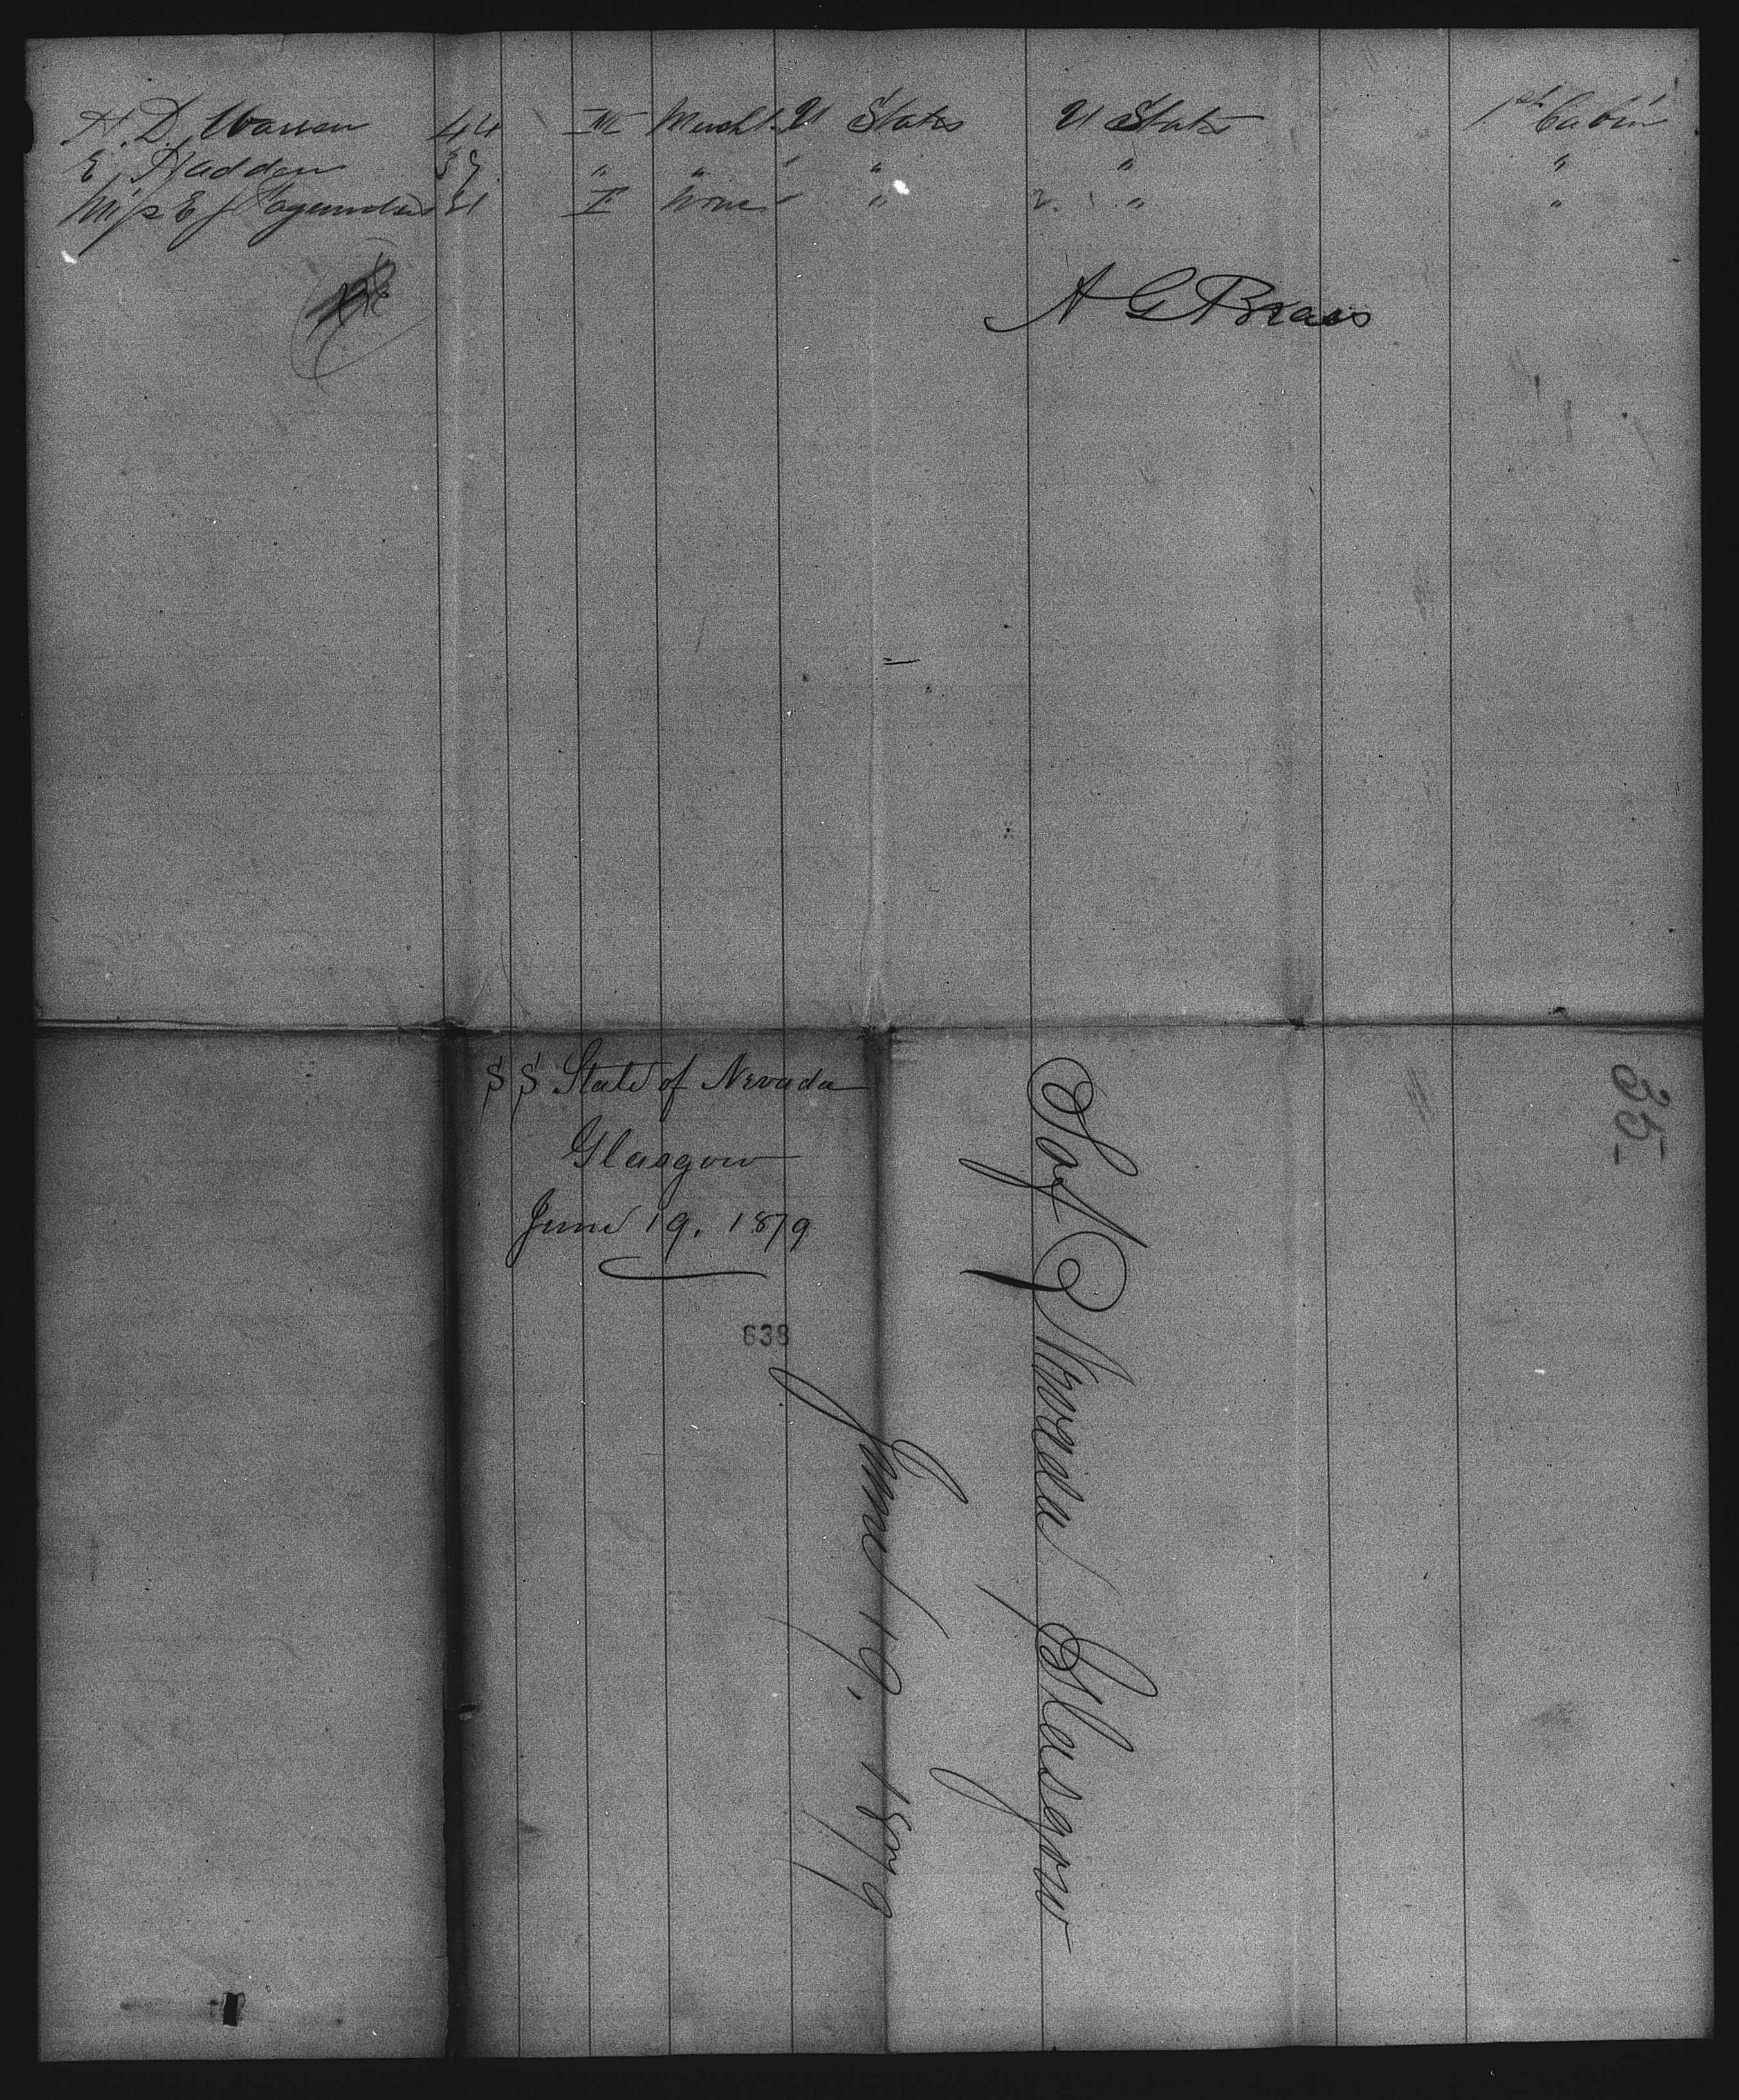 H. D. Warren 44 M Mercht. U States U States 1st Cabin
E Hadden 37 " " " " "
Miss E J 21 F None " " "
A G Braes
S S State of Nevada
Glasgow
June 19. 1879
638
S of Nevada / Glasgow
June 19, 1879
35